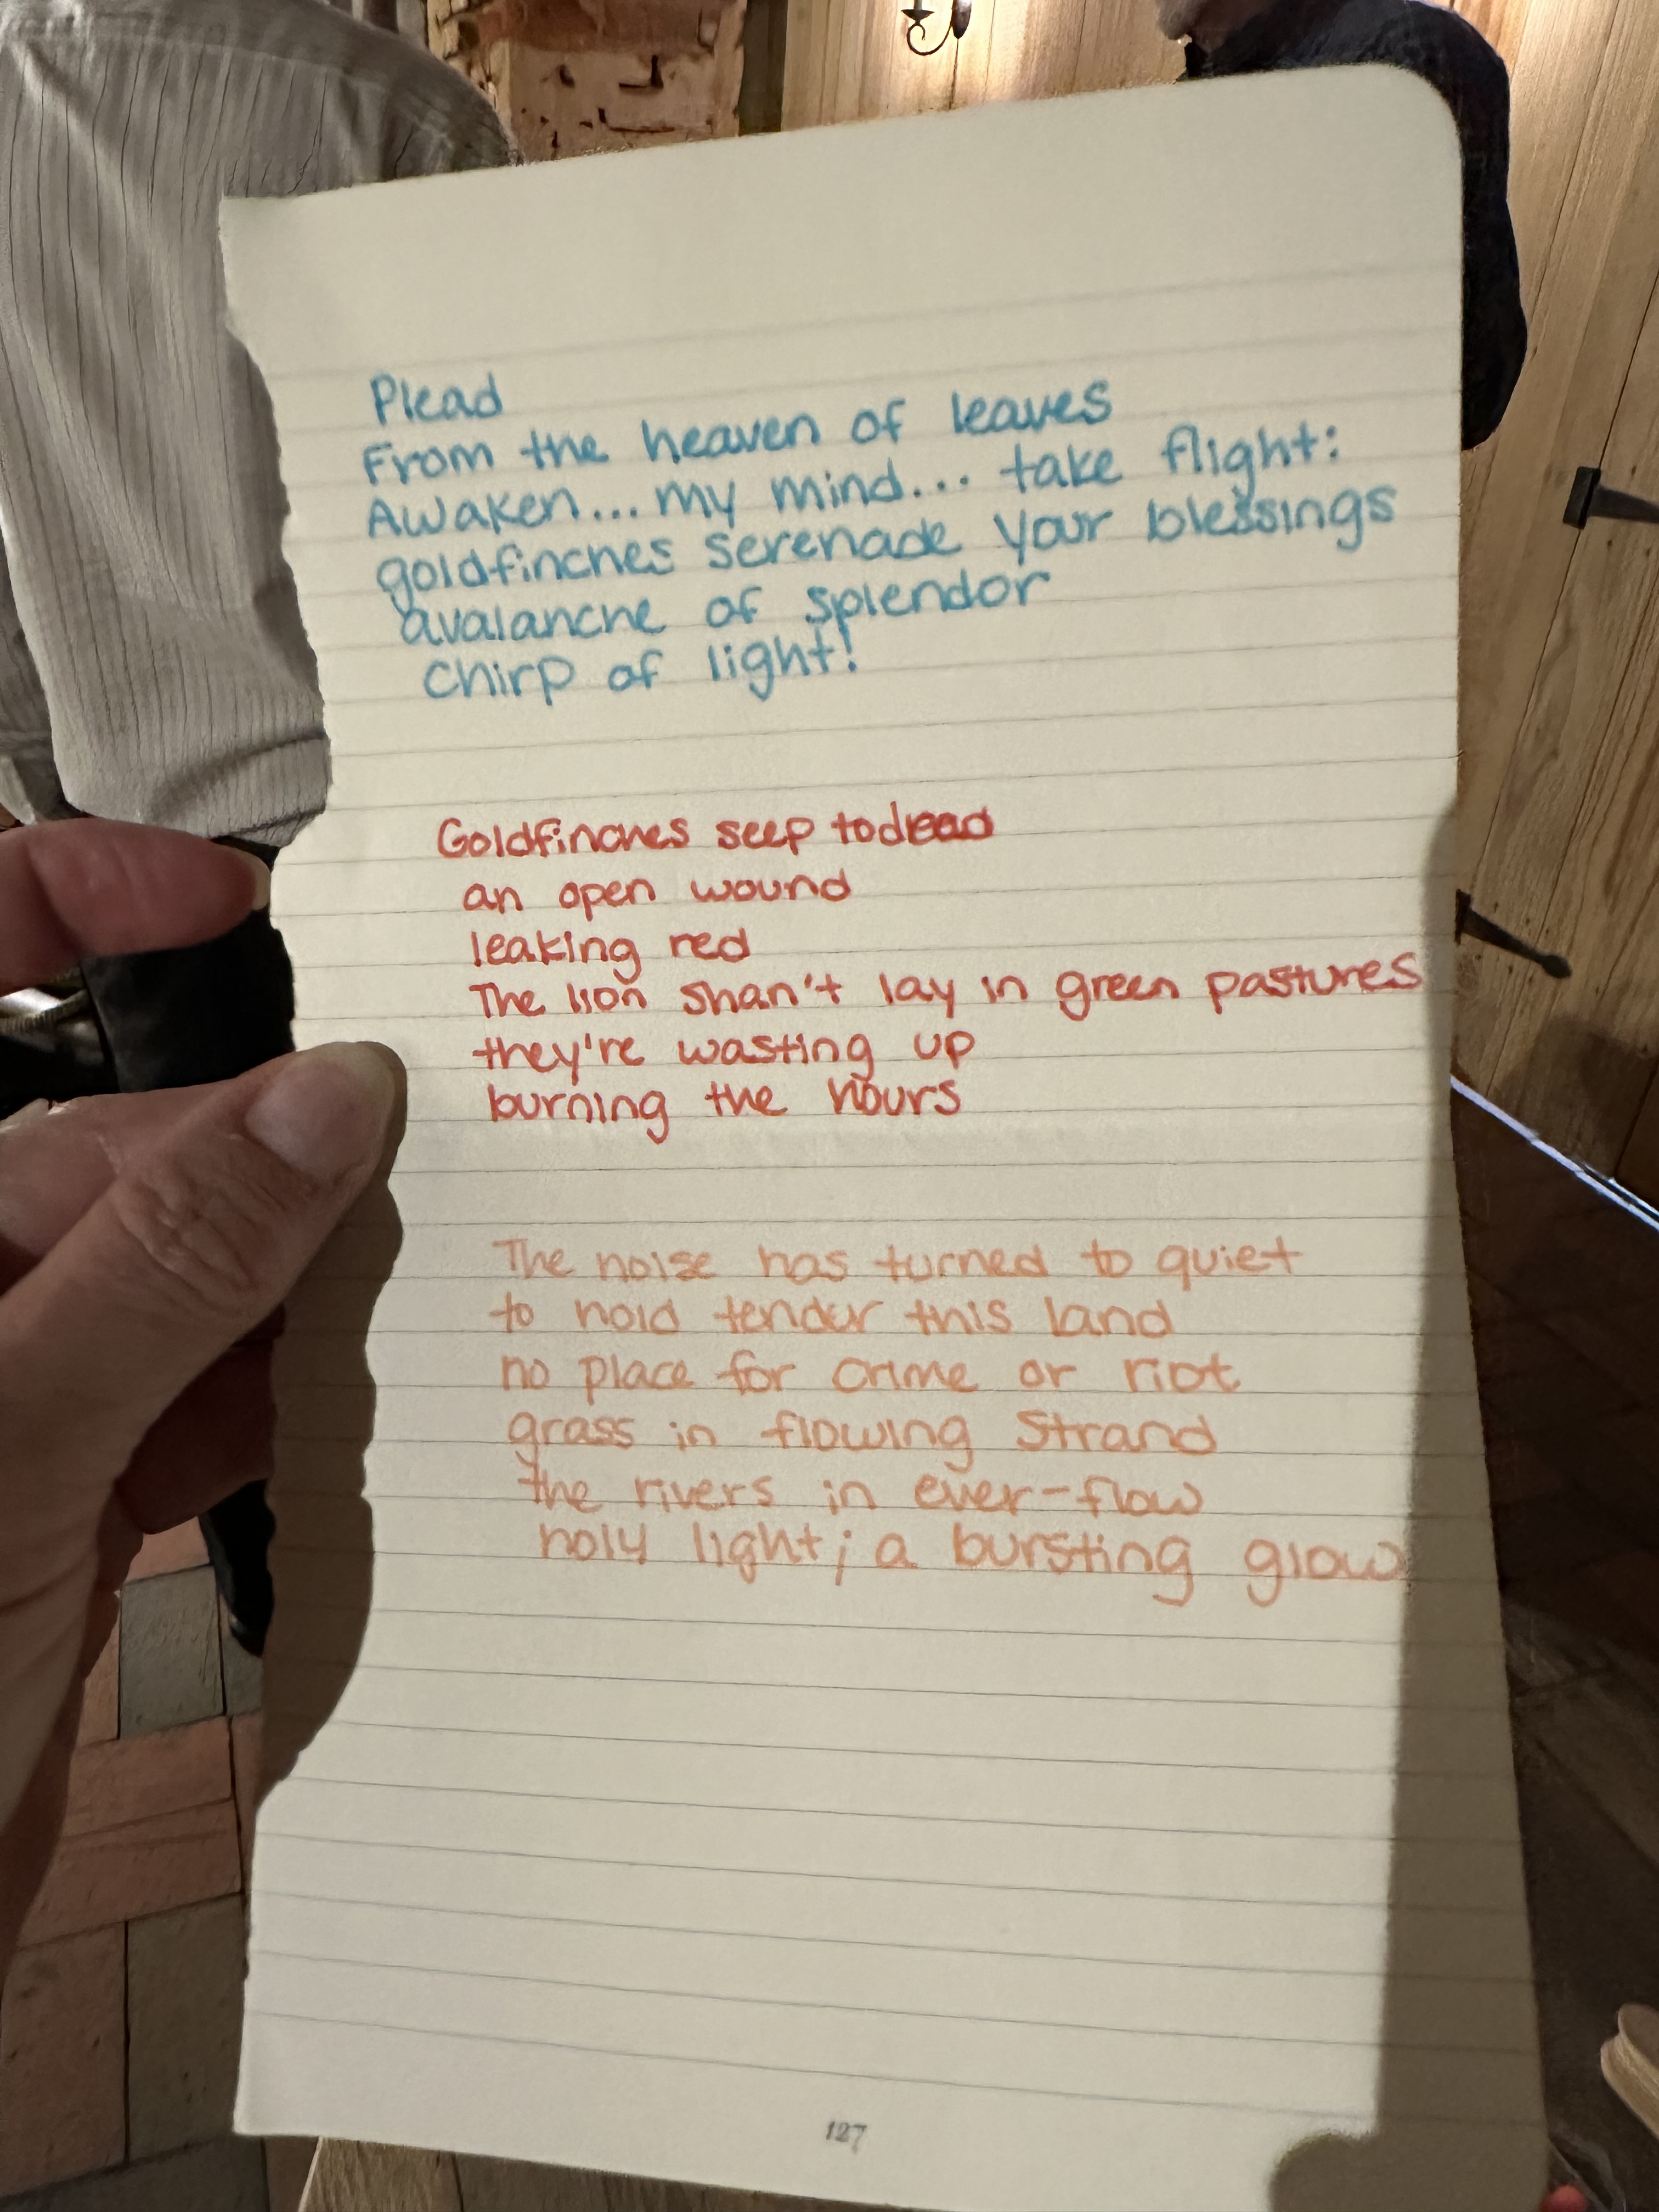 Plead
From the heaven of leaves
Awaken... my mind... take flight:
goldfinches serenade your blessings
avalanche of splendor
chirp of light!
Goldfinches seep to dread
an open wound
leaking red
The lion shan't lay in green pastures
they're wasting up
burning the hours
The noise has turned to quiet
to hold tender this land
no place for crime or riot
grass in flowing strand
the rivers in ever-flow
holy light; a bursting glow
127